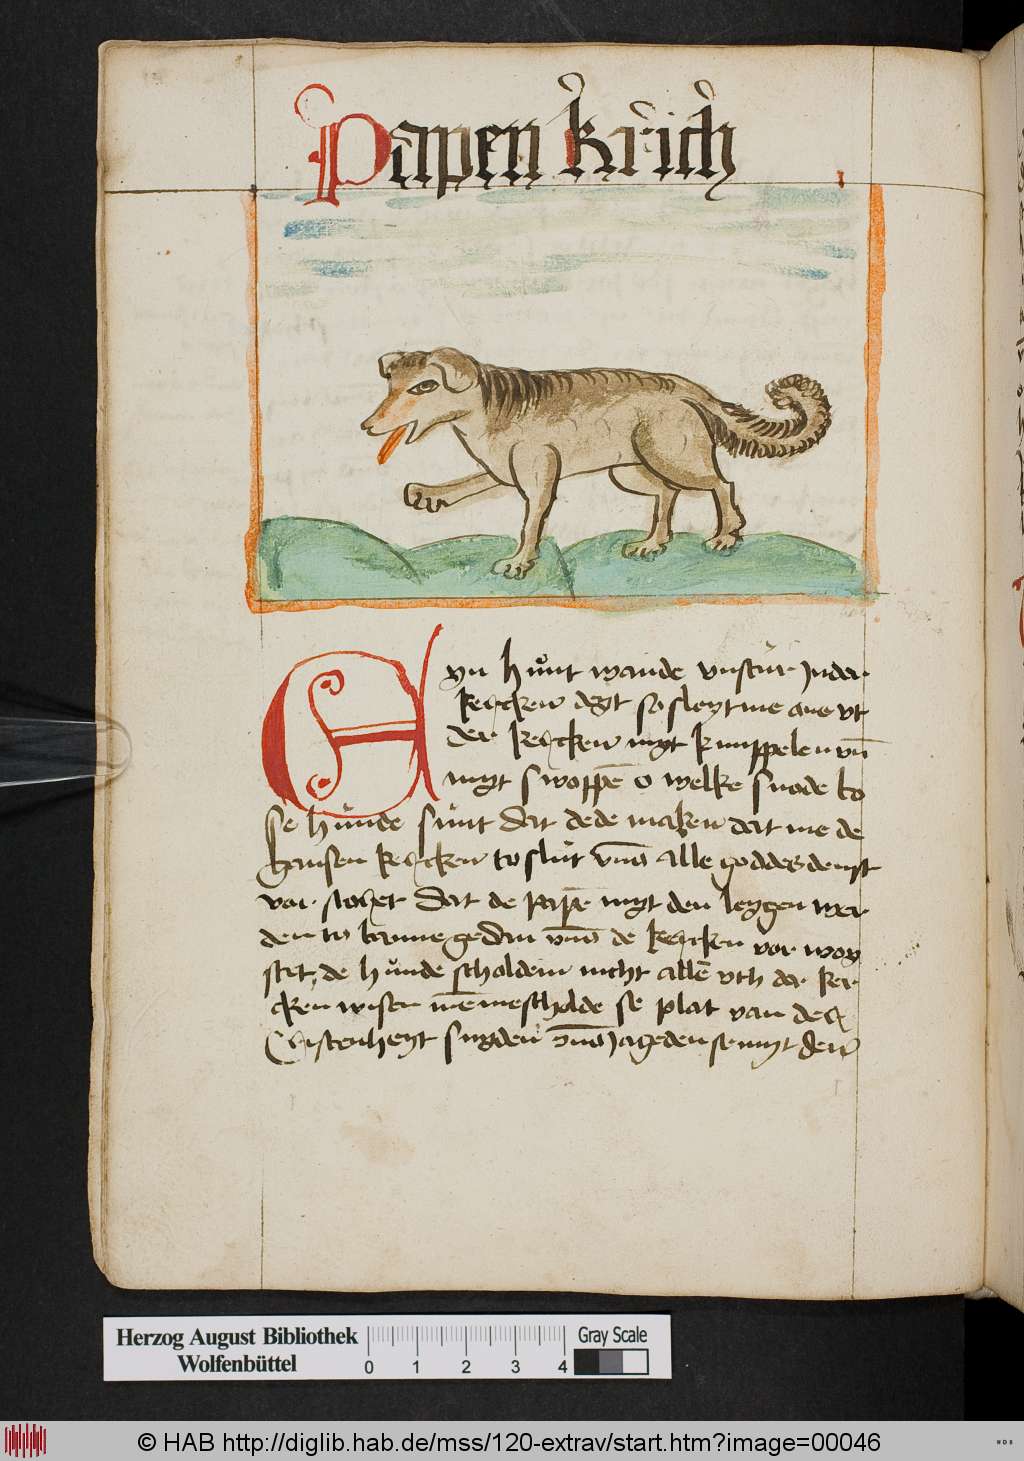 Papen krich
Eyn hunt wande vnstur in der
kercken degt so sleyt me ene vt
der kercken myt knuppelen vn̄
myt swoppē o welke snode bo
se hunde sunt dat de de maken dat me de
gansen kercken to slut vnd alle goddes denst
vor stoͤret dat de papē myt den leygen wer
den to banne gedan vnd de kercken vor woy
stet, de hunde scholdem nicht allē vth der ker
cken wisen mē me scholde se plat van der
Cristenheyt snyden vnd iageden se myt den
Herzog August Bibliothek
Wolfenbüttel
0 1 2 3 4
Gray Scale
© HAB http://diglib.hab.de/mss/120-extrav/start.htm?image=00046
WDB